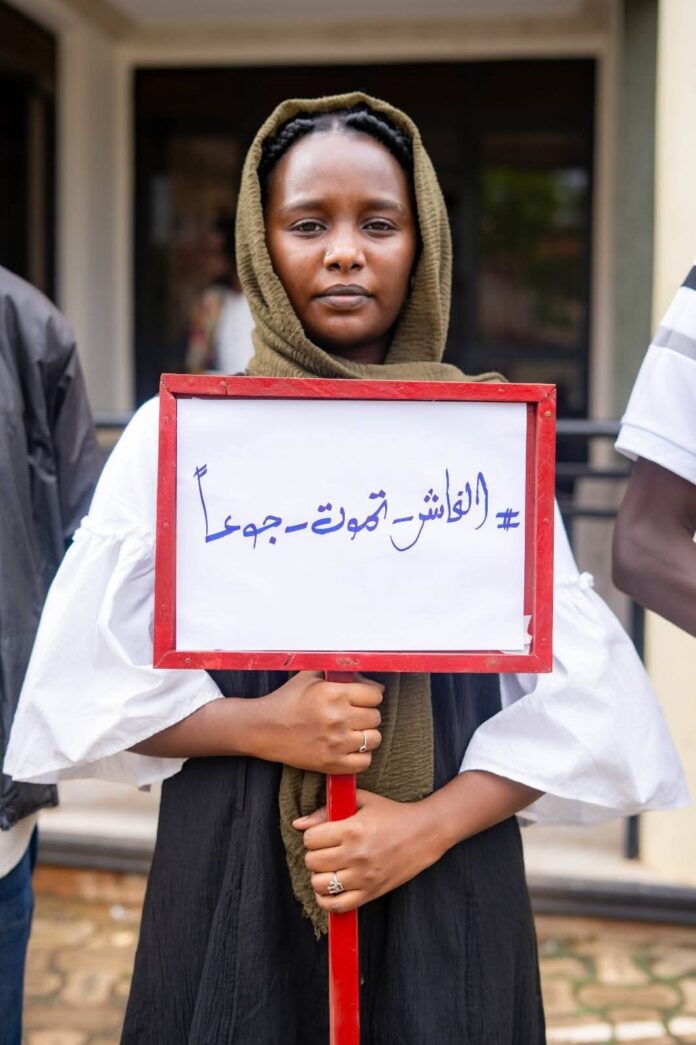 #الفاشر_تموت_جوعاً